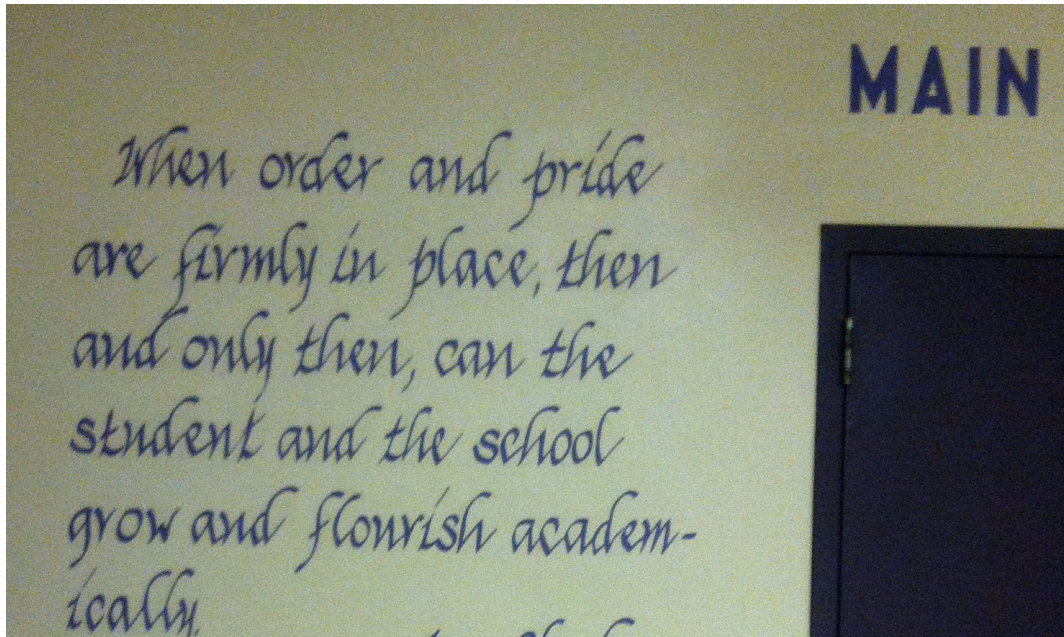 MAIN
When order and pride
are firmly in place, then
and only then, can the
student and the school
grow and flourish academ-
ically.